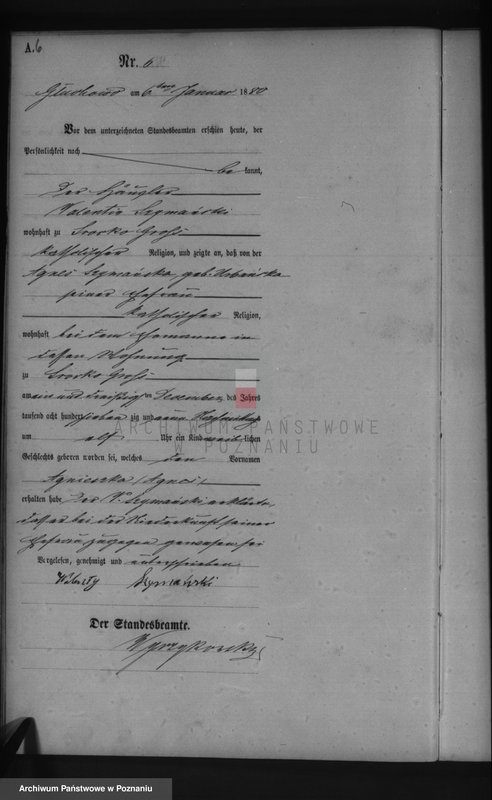 A. 6
Nr. 6
Gluchowo am 6ten Januar 1880
Vor dem unterzeichneten Standesbeamten erschien heute, der
Persönlichkeit nach
be kannt,
Der Häusler
Valentin Szymański
wohnhaft zu Srocko Groß
katholischer Religion, und zeigte an, daß von der
Agnes Szymańska, geb. Urbańska
seiner Ehefrau
katholischer Religion,
wohnhaft bei dem Ehemanne in
dessen Wohnung
zu Srocko Groß
am ein und dreißigten Dezember des Jahres
tausend acht hundert siebenzig und neun Nachmittags
um elf Uhr ein Kind weiblichen
Geschlechts geboren worden sei, welches den Vornamen
Agnieszka /Agnes/
erhalten habe. Der V. Szymański erklärte,
dass er bei der Niederkunft seiner
Ehefrau zugegen gewesen sei
Vorgelesen, genehmigt und unterschrieben
Szymański
Der Standesbeamte.
ARCHIWUM PAŃSTWOWE
W POZNANIU
Archiwum Państwowe w Poznaniu